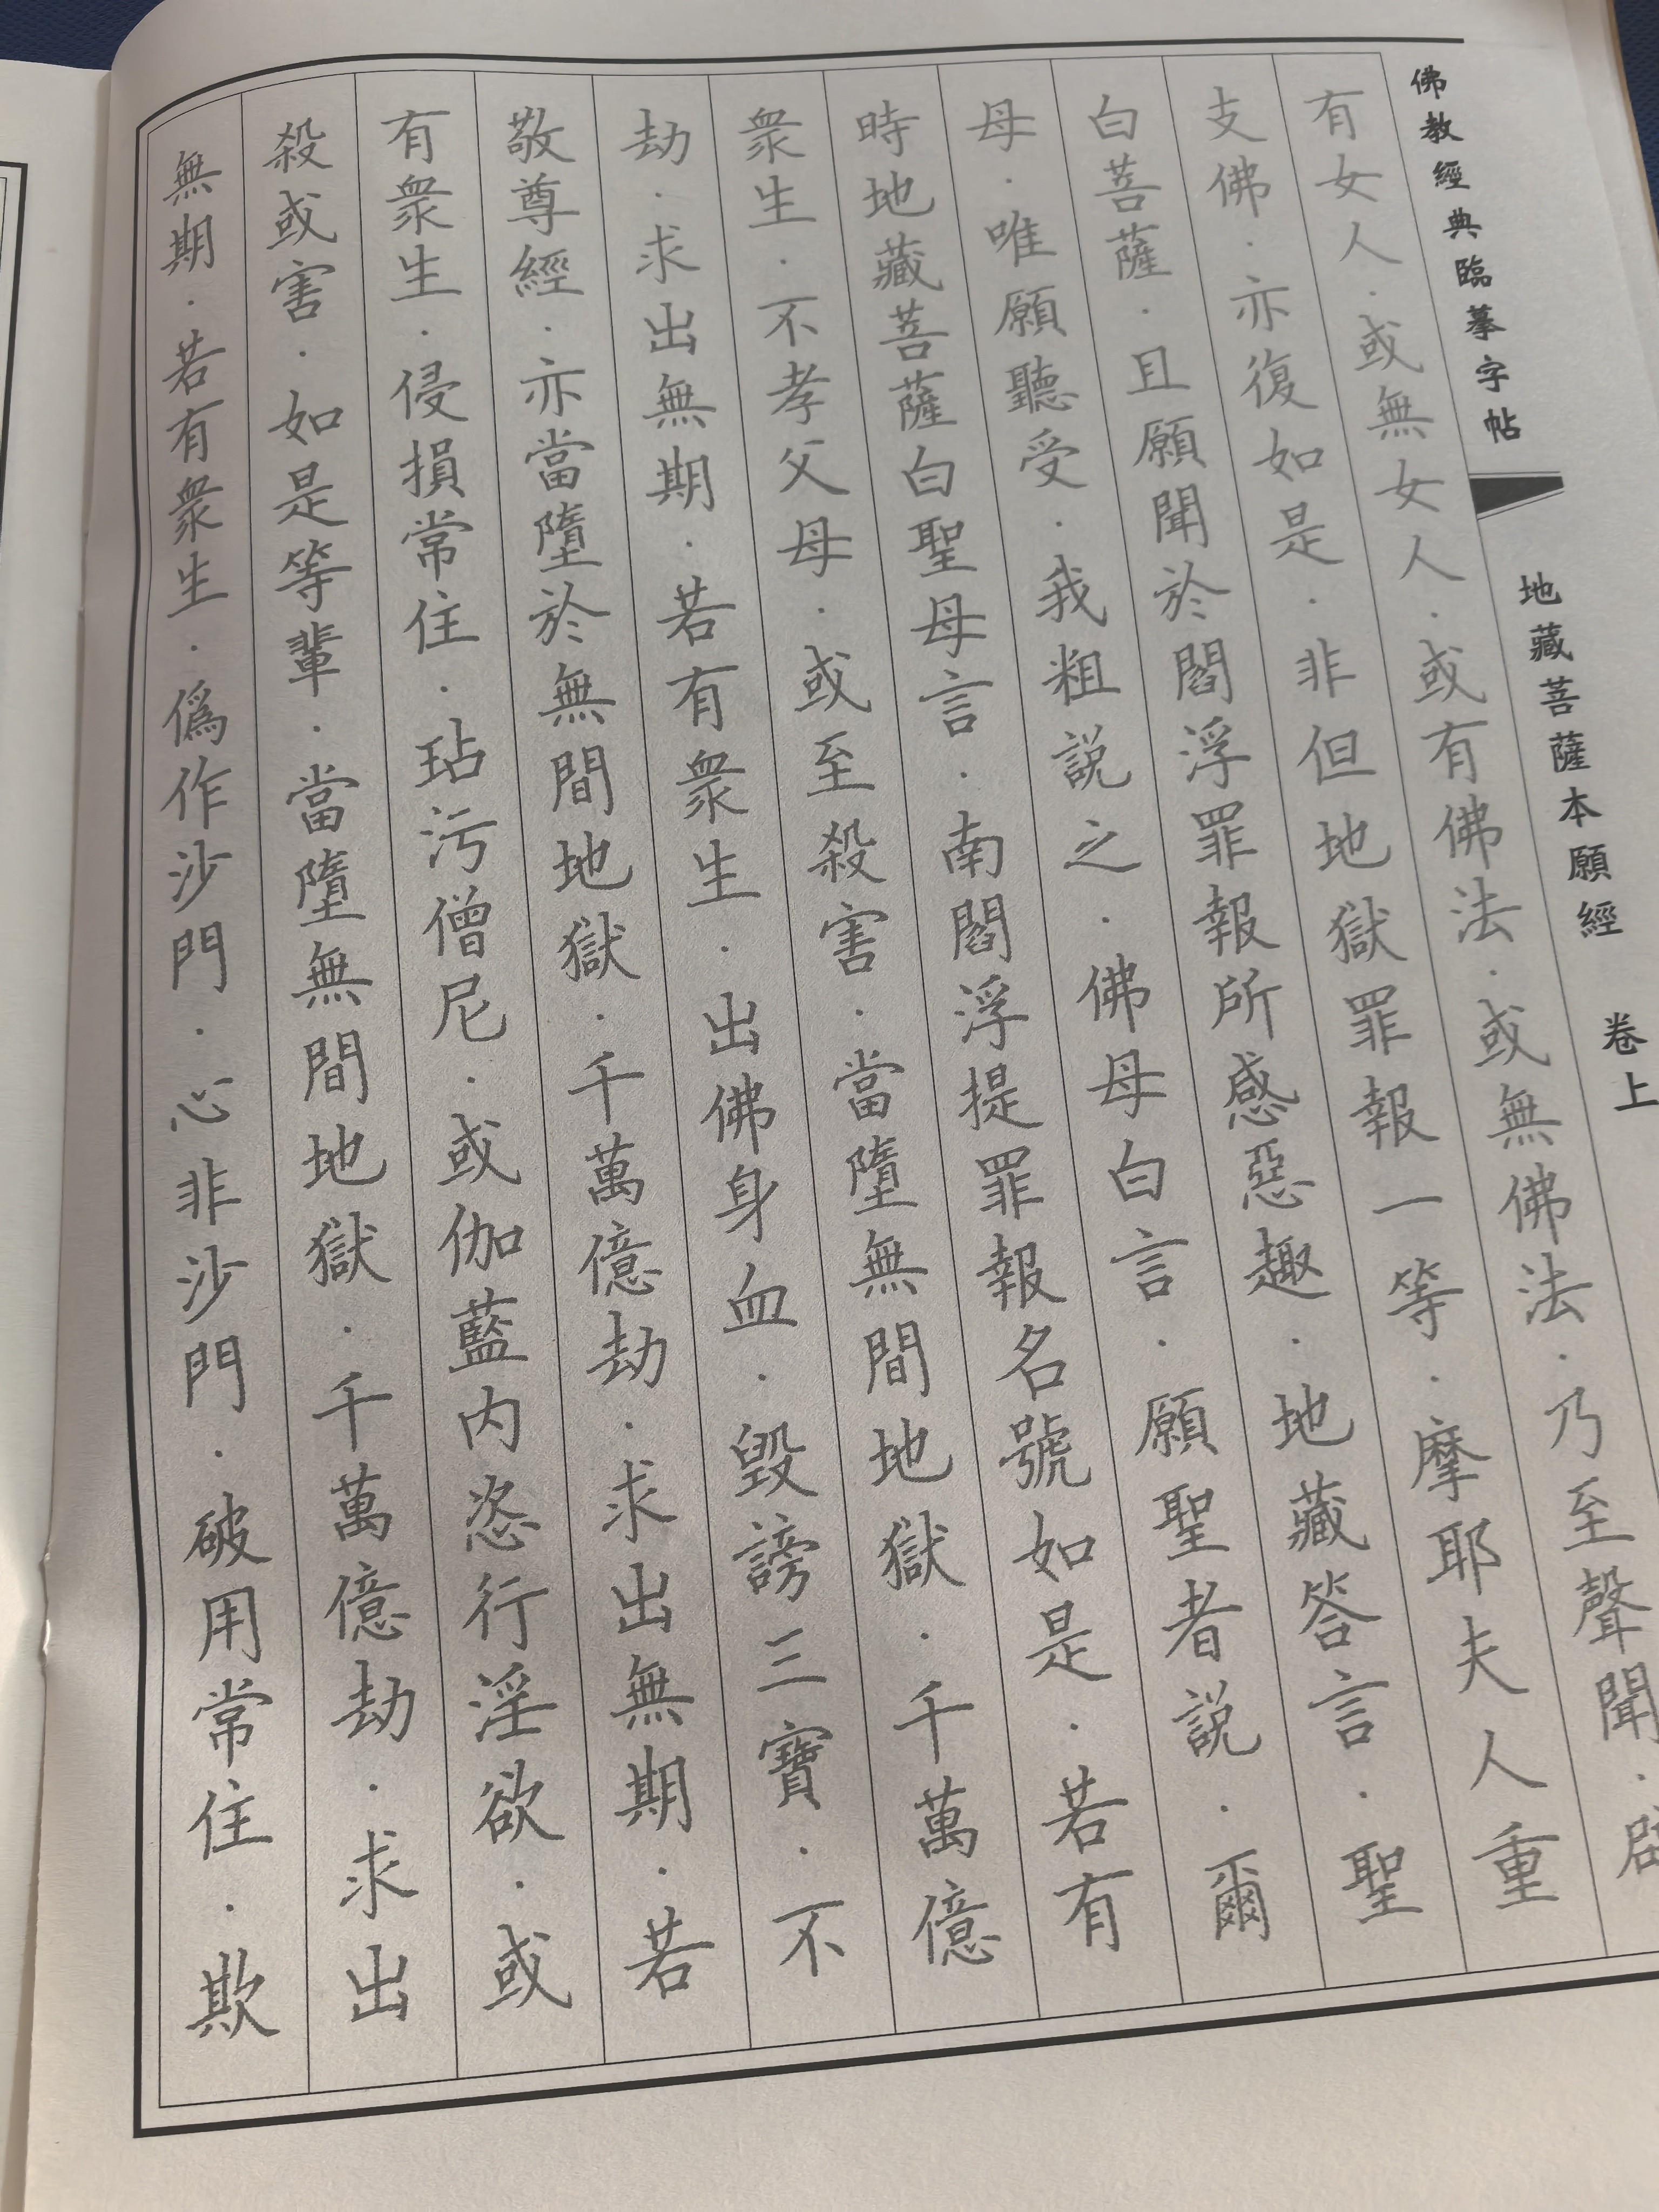 佛教經典臨摹字帖
地藏菩薩本願經 卷上
有女人．或無女人．或有佛法．或無佛法．乃至聲聞．辟
支佛．亦復如是．非但地獄罪報一等．摩耶夫人重
白菩薩．且願聞於閻浮罪報所感惡趣．地藏答言．聖
母．唯願聽受．我粗説之．佛母白言．願聖者説．爾
時地藏菩薩白聖母言．南閻浮提罪報名號如是．若有
衆生．不孝父母．或至殺害．當墮無間地獄．千萬億
劫．求出無期．若有衆生．出佛身血．毀謗三寶．不
敬尊經．亦當墮於無間地獄．千萬億劫．求出無期．若
有衆生．侵損常住．玷污僧尼．或伽藍内恣行淫欲．或
殺或害．如是等輩．當墮無間地獄．千萬億劫．求出
無期．若有衆生．僞作沙門．心非沙門．破用常住．欺